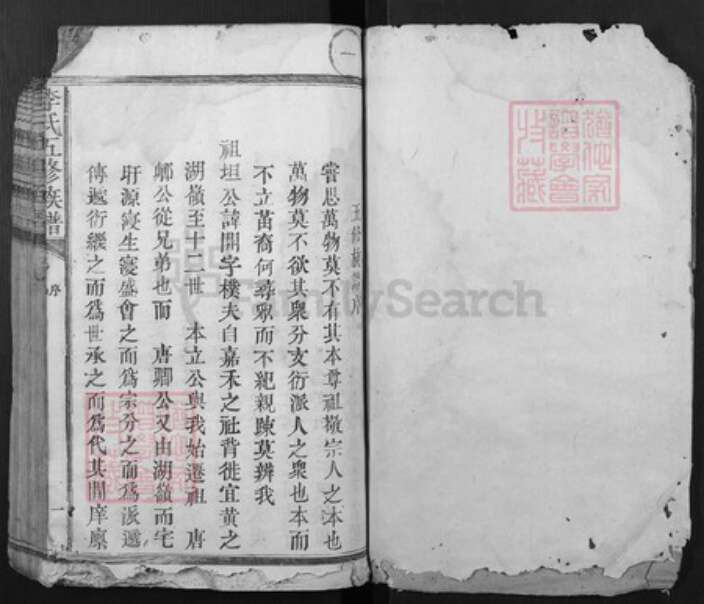 一
五修族譜序
嘗思萬物莫不有其本尊祖敬宗人之本也
萬物莫不欲其衆分支衍派人之衆也本而
不立苗裔何尋衆而不紀親踈莫辨我
祖坦公諱開字樸夫自嘉禾之社背徙宜黃之
湖嶺至十二世 本立公與我始遷祖 唐
鄉公從兄弟也而 唐卿公又由湖嶺而宅
㽵源寖生寖盛會之而爲宗分之而爲派遞
傳遞衍繼之而爲世承之而爲代其間庠廩
李氏五修族譜
序
一
FamilySearch